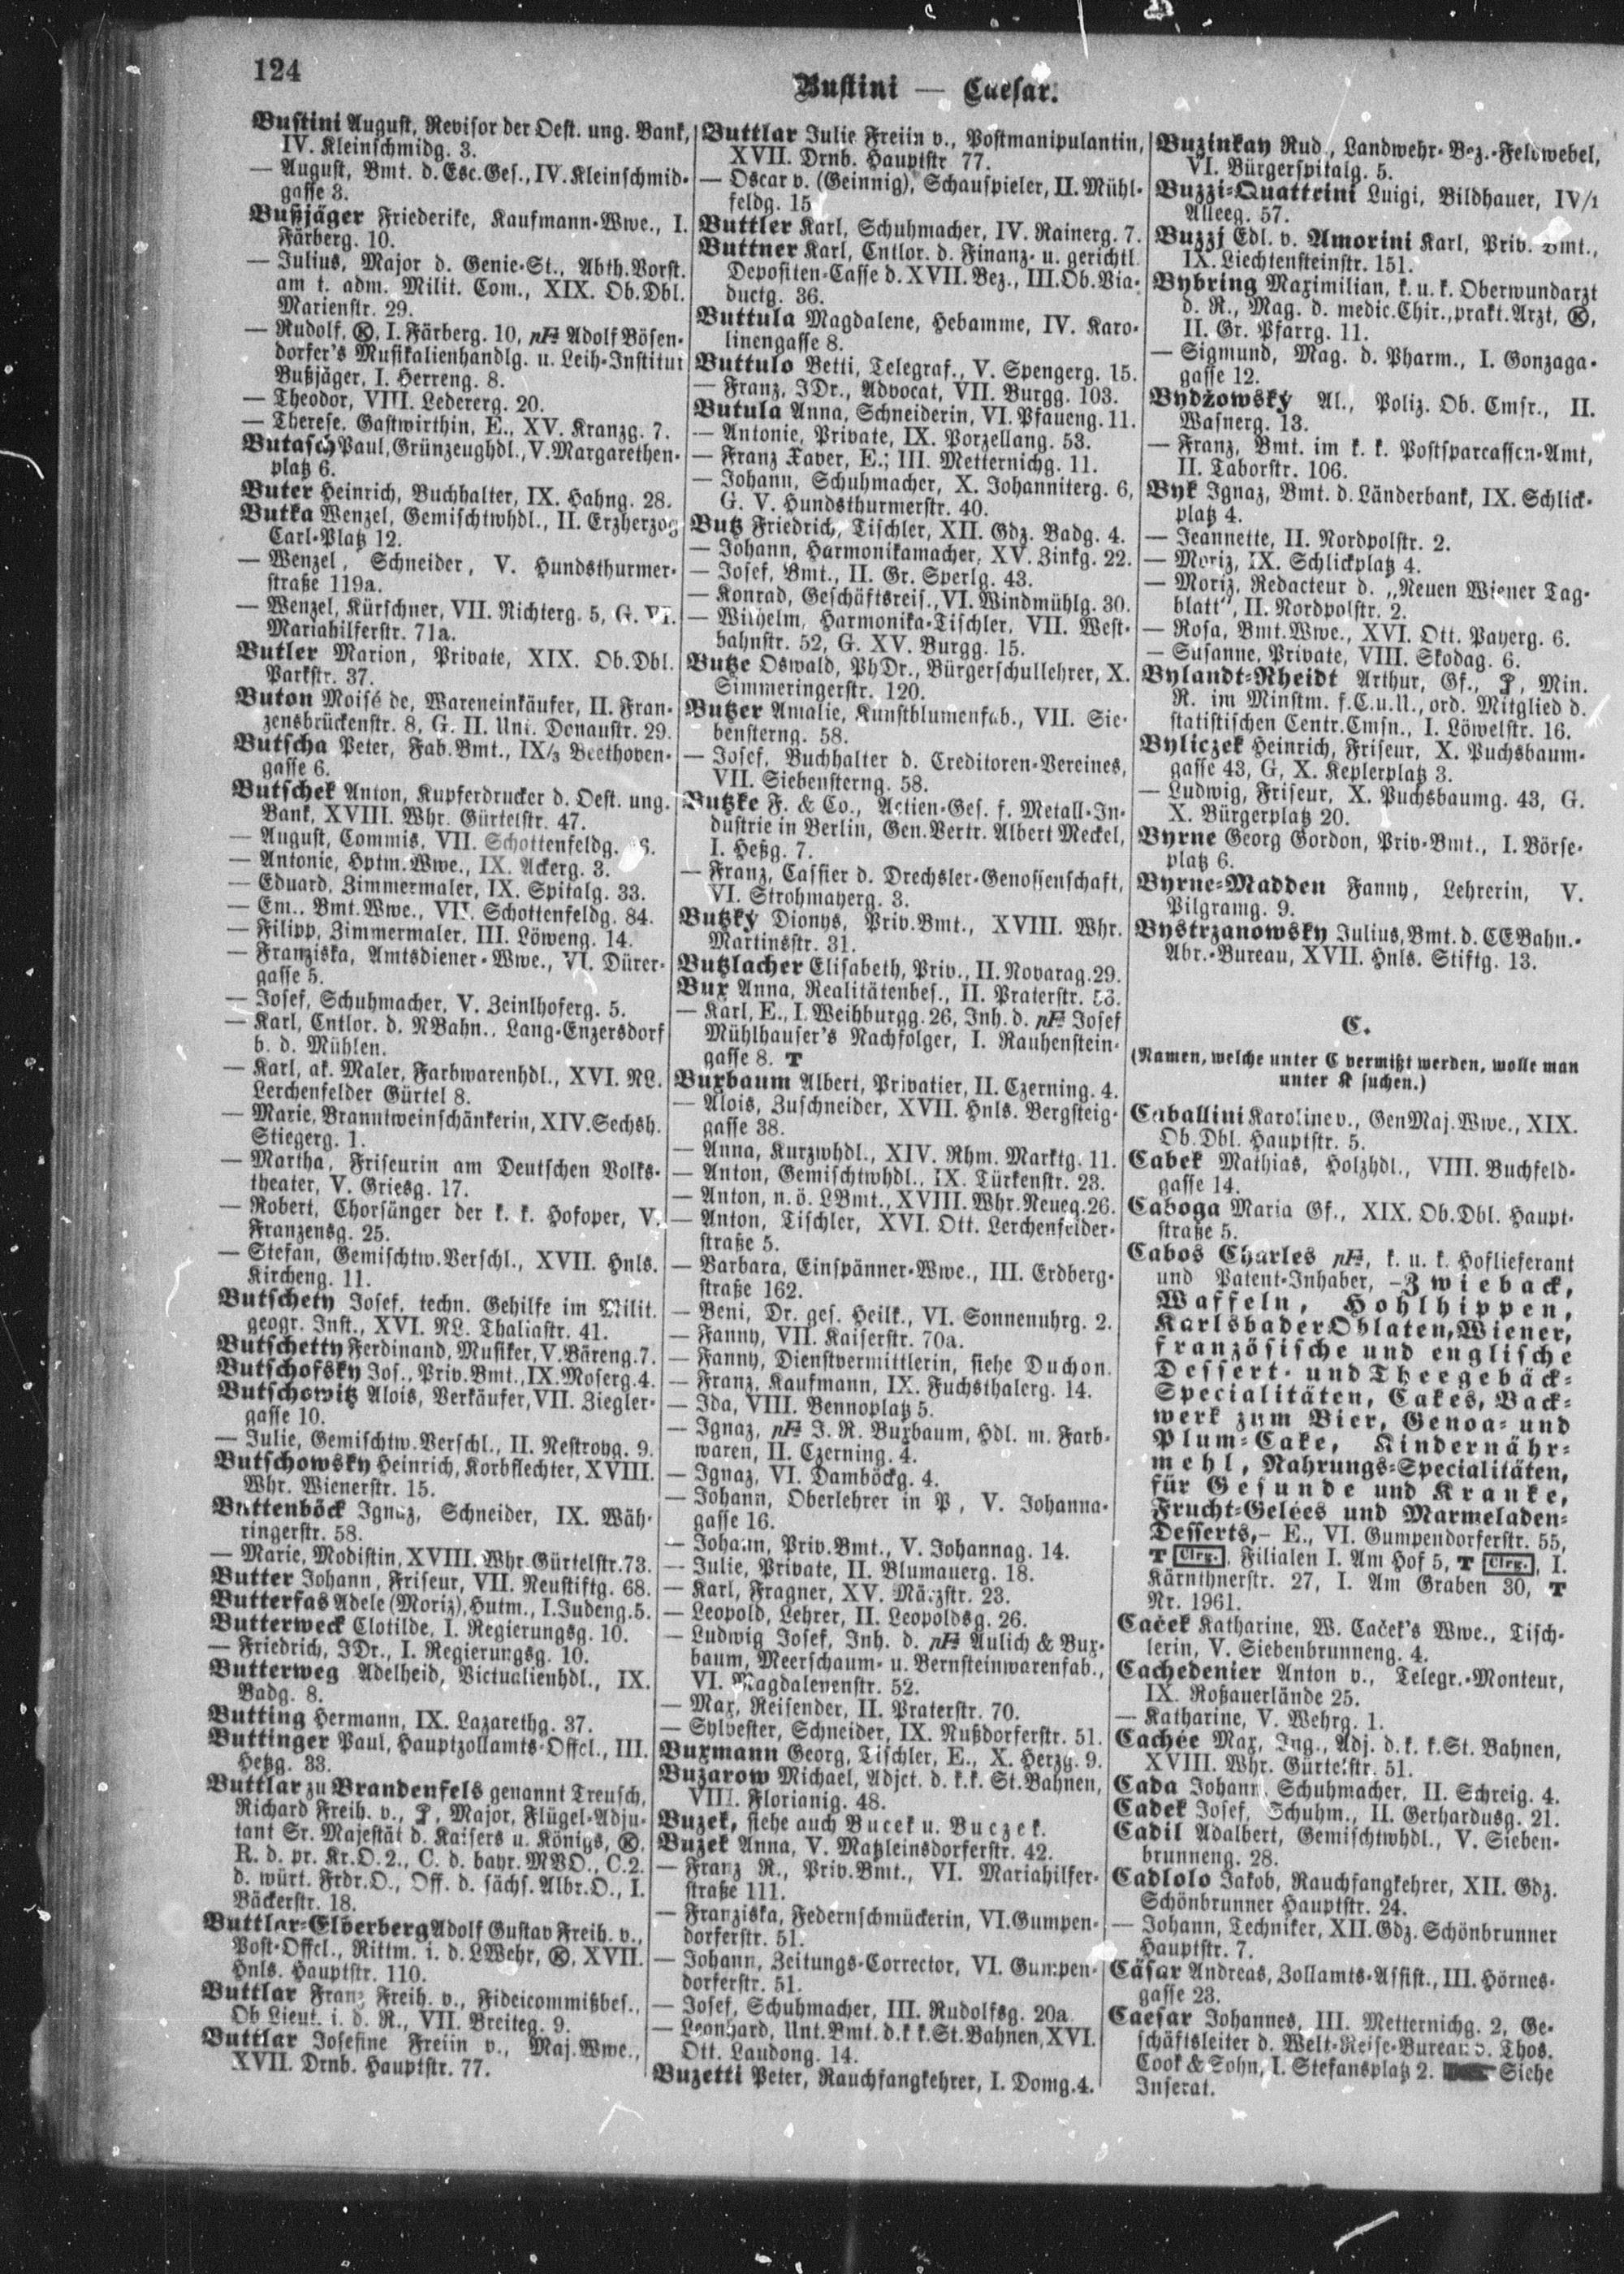 124
Bustini — Caesar.
Bustini August, Revisor der Oest. ung. Bank,
IV. Kleinschmidg. 3.
— August, Bmt. d. Esc. Ges., IV. Kleinschmid-
gasse 3.
Bußjäger Friederike, Kaufmann-Wwe., I.
Färberg. 10.
— Julius, Major d. Genie-St., Abth. Vorst.
am t. adm. Milit. Com., XIX. Ob. Dbl.
Marienstr. 29.
— Rudolf, Ⓚ, I. Färberg. 10, pF Adolf Bösen-
dorfer's Musikalienhandlg. u. Leih-Institut
Bußjäger, I. Herreng. 8.
— Theodor, VIII. Ledererg. 20.
— Therese, Gastwirthin, E., XV. Kranzg. 7.
Butasch Paul, Grünzeughdl., V. Margarethen-
platz 6.
Buter Heinrich, Buchhalter, IX. Hahng. 28.
Butka Wenzel, Gemischtwhdl., II. Erzherzog
Carl-Platz 12.
— Wenzel, Schneider, V. Hundsthurmer-
straße 119a.
— Wenzel, Kürschner, VII. Richterg. 5, G. VI.
Mariahilferstr. 71a.
Butler Marion, Private, XIX. Ob. Dbl.
Parkstr. 37.
Buton Moisé de, Wareneinkäufer, II. Fran-
zensbrückenstr. 8, G. II. Unt. Donaustr. 29.
Butscha Peter, Fab. Bmt., IX/3 Beethoven-
gasse 6.
Butschek Anton, Kupferdrucker d. Oest. ung.
Bank, XVIII. Whr. Gürtelstr. 47.
— August, Commis, VII. Schottenfeldg.
— Antonie, Hptm. Wwe., IX. Ackerg. 3.
— Eduard, Zimmermaler, IX. Spitalg. 33.
— Em., Bmt. Wwe., VII. Schottenfeldg. 84.
— Filipp, Zimmermaler, III. Löweng. 14.
— Franziska, Amtsdiener-Wwe., VI. Dürer-
gasse 5.
— Josef, Schuhmacher, V. Zeinlhoferg. 5.
— Karl, Cntlor. d. NBahn., Lang-Enzersdorf
b. d. Mühlen.
— Karl, ak. Maler, Farbwarenhdl., XVI. NL.
Lerchenfelder Gürtel 8.
— Marie, Branntweinschänkerin, XIV. Sechsh.
Stiegerg. 1.
— Martha, Friseurin am Deutschen Volks-
theater, V. Griesg. 17.
— Robert, Chorsänger der k. k. Hofoper, V.
Franzensg. 25.
— Stefan, Gemischtw. Verschl., XVII. Hnls.
Kircheng. 11.
Butschety Josef, techn. Gehilfe im Milit.
geogr. Inst., XVI. NL. Thaliastr. 41.
Butschetty Ferdinand, Musiker, V. Bäreng. 7.
Butschofsky Jos., Priv. Bmt., IX. Moserg. 4.
Butschowitz Alois, Verkäufer, VII. Ziegler-
gasse 10.
— Julie, Gemischtw. Verschl., II. Nestroyg. 9.
Butschowsky Heinrich, Korbflechter, XVIII.
Whr. Wienerstr. 15.
Buttenböck Ignaz, Schneider, IX. Wäh-
ringerstr. 58.
— Marie, Modistin, XVIII. Whr. Gürtelstr. 73.
Butter Johann, Friseur, VII. Neustiftg. 68.
Butterfas Adele (Moriz), Hutm., I. Judeng. 5.
Butterweck Clotilde, I. Regierungsg. 10.
— Friedrich, JDr., I. Regierungsg. 10.
Butterweg Adelheid, Victualienhdl., IX.
Badg. 8.
Butting Hermann, IX. Lazarethg. 37.
Buttinger Paul, Hauptzollamts-Offcl., III.
Hetzg. 33.
Buttlar zu Brandenfels genannt Treusch,
Richard Freih. v., Major, Flügel-Adju-
tant Sr. Majestät d. Kaisers u. Königs, Ⓚ,
R. d. pr. Kr. O. 2., C. d. bayr. MVO., C. 2.
d. würt. Frdr. O., Off. d. sächs. Albr. O., I.
Bäckerstr. 18.
Buttlar-Elberberg Adolf Gustav Freih. v.,
Post-Offcl., Rittm. i. d. LWehr, Ⓚ, XVII.
Hnls. Hauptstr. 110.
Buttlar Franz Freih. v., Fideicommißbes.,
Ob Lieut. i. d. R., VII. Breiteg. 9.
Buttlar Josefine Freiin v., Maj. Wwe.,
XVII. Drnb. Hauptstr. 77.
Buttlar Julie Freiin v., Postmanipulantin,
XVII. Drnb. Hauptstr 77.
— Oscar v. (Geinnig), Schauspieler, II. Mühl-
feldg. 15
Buttler Karl, Schuhmacher, IV. Rainerg. 7.
Buttner Karl, Cntlor. d. Finanz- u. gerichtl.
Depositen-Casse d. XVII. Bez., III. Ob. Via-
ductg. 36.
Buttula Magdalene, Hebamme, IV. Karo-
linengasse 8.
Buttulo Betti, Telegraf., V. Spengerg. 15.
— Franz, JDr., Advocat, VII. Burgg. 103.
Butula Anna, Schneiderin, VI. Pfaueng. 11.
— Antonie, Private, IX. Porzellang. 53.
— Franz Xaver, E.; III. Metternichg. 11.
— Johann, Schuhmacher, X. Johanniterg. 6,
G. V. Hundsthurmerstr. 40.
Butz Friedrich, Tischler, XII. Gdz. Badg. 4.
— Johann, Harmonikamacher, XV. Zinkg. 22.
— Josef, Bmt., II. Gr. Sperlg. 43.
— Konrad, Geschäftsreis., VI. Windmühlg. 30.
— Wilhelm, Harmonika-Tischler, VII. West-
bahnstr. 52, G. XV. Burgg. 15.
Butze Oswald, PhDr., Bürgerschullehrer, X.
Simmeringerstr. 120.
Butzer Amalie, Kunstblumenfab., VII. Sie-
bensterng. 58.
— Josef, Buchhalter d. Creditoren-Vereines,
VII. Siebensterng. 58.
Butzke F. & Co., Actien-Ges. f. Metall-In-
dustrie in Berlin, Gen. Vertr. Albert Meckel,
I. Heßg. 7.
— Franz, Cassier d. Drechsler-Genossenschaft,
VI. Strohmayerg. 3.
Butzký Dionys, Priv. Bmt., XVIII. Whr.
Martinsstr. 31.
Butzlacher Elisabeth, Priv., II. Novarag. 29.
Bux Anna, Realitätenbes., II. Praterstr. 53.
— Karl, E., I. Weihburgg. 26, Inh. d. pF Josef
Mühlhauser's Nachfolger, I. Rauhenstein-
gasse 8. T
Buxbaum Albert, Privatier, II. Czerning. 4.
— Alois, Zuschneider, XVII. Hnls. Bergsteig-
gasse 38.
— Anna, Kurzwhdl., XIV. Rhm. Marktg. 11.
— Anton, Gemischtwhdl., IX. Türkenstr. 23.
— Anton, n. ö. LBmt., XVIII. Whr. Neueg. 26.
— Anton, Tischler, XVI. Ott. Lerchenfelder-
straße 5.
— Barbara, Einspänner-Wwe., III. Erdberg-
straße 162.
— Beni, Dr. ges. Heilk., VI. Sonnenuhrg. 2.
— Fanny, VII. Kaiserstr. 70a.
— Fanny, Dienstvermittlerin, siehe Duchon.
— Franz, Kaufmann, IX. Fuchsthalerg. 14.
— Ida, VIII. Bennoplatz 5.
— Ignaz, pF J. R. Buxbaum, Hdl. m. Farb-
waren, II. Czerning. 4.
— Ignaz, VI. Damböckg. 4.
— Johann, Oberlehrer in P, V. Johanna-
gasse 16.
— Johann, Priv. Bmt., V. Johannag. 14.
— Julie, Private, II. Blumauerg. 18.
— Karl, Fragner, XV. Märzstr. 23.
— Leopold, Lehrer, II. Leopoldsg. 26.
— Ludwig Josef, Inh. d. pF Aulich & Bux-
baum, Meerschaum- u. Bernsteinwarenfab.,
VI. Magdalenenstr. 52.
— Max, Reisender, II. Praterstr. 70.
— Sylvester, Schneider, IX. Nußdorferstr. 51.
Buxmann Georg, Tischler, E., X. Herzg. 9.
Buzarow Michael, Adjct. d. k. k. St. Bahnen,
VIII. Florianig. 48.
Buzek, siehe auch Bucek u. Buczek.
Buzek Anna, V. Matzleinsdorferstr. 42.
— Franz R., Priv. Bmt., VI. Mariahilfer-
straße 111.
— Franziska, Federnschmückerin, VI. Gumpen-
dorferstr. 51.
— Johann, Zeitungs-Corrector, VI. Gumpen-
dorferstr. 51.
— Josef, Schuhmacher, III. Rudolfsg. 20a.
— Leonhard, Unt. Bmt. d. k k. St. Bahnen, XVI.
Ott. Laudong. 14.
Buzetti Peter, Rauchfangkehrer, I. Domg. 4.
Buzinkay Rud., Landwehr-Bez.-Feldwebel,
VI. Bürgerspitalg. 5.
Buzzi-Quattrini Luigi, Bildhauer, IV/1
Alleeg. 57.
Buzzi Edl. v. Amorini Karl, Priv. Bmt.,
IX. Liechtensteinstr. 151.
Bybring Maximilian, k. u. k. Oberwundarzt
d. R., Mag. d. medic. Chir., prakt. Arzt, Ⓚ,
II. Gr. Pfarrg. 11.
— Sigmund, Mag. d. Pharm., I. Gonzaga-
gasse 12.
Bydžowský Al., Poliz. Ob. Cmsr., II.
Wasnerg. 13.
— Franz, Bmt. im k. k. Postsparcassen-Amt,
II. Taborstr. 106.
Byk Ignaz, Bmt. d. Länderbank, IX. Schlick-
platz 4.
— Jeannette, II. Nordpolstr. 2.
— Moriz, IX. Schlickplatz 4.
— Moriz, Redacteur d. „Neuen Wiener Tag-
blatt", II. Nordpolstr. 2.
— Rosa, Bmt. Wwe., XVI. Ott. Payerg. 6.
— Susanne, Private, VIII. Skodag. 6.
Bylandt-Rheidt Arthur, Gf., Min.
R. im Minstm. f. C. u. U., ord. Mitglied d.
statistischen Centr. Cmsn., I. Löwelstr. 16.
Byliczek Heinrich, Friseur, X. Puchsbaum-
gasse 43, G. X. Keplerplatz 3.
— Ludwig, Friseur, X. Puchsbaumg. 43, G.
X. Bürgerplatz 20.
Byrne Georg Gordon, Priv-Bmt., I. Börse-
platz 6.
Byrne-Madden Fanny, Lehrerin, V.
Pilgramg. 9.
Bystrzanowsky Julius, Bmt. d. CEBahn.-
Abr.-Bureau, XVII. Hnls. Stiftg. 13.
C.
(Namen, welche unter C vermißt werden, wolle man
unter K suchen.)
Caballini Karoline v., GenMaj. Wwe., XIX.
Ob. Dbl. Hauptstr. 5.
Cabek Mathias, Holzhdl., VIII. Buchfeld-
gasse 14.
Caboga Maria Gf., XIX. Ob. Dbl. Haupt-
straße 5.
Cabos Charles pF, k. u. k. Hoflieferant
und Patent-Inhaber, –Zwieback,
Waffeln, Hohlhippen,
Karlsbader Oblaten, Wiener,
französische und englische
Dessert- und Theegebäck-
Specialitäten, Cakes, Back-
werk zum Bier, Genoa- und
Plum-Cake, Kindernähr-
mehl, Nahrungs-Specialitäten,
für Gesunde und Kranke,
Frucht-Gelées und Marmeladen-
Desserts,– E., VI. Gumpendorferstr. 55,
T Clrg., Filialen I. Am Hof 5, T Clrg., I.
Kärnthnerstr. 27, I. Am Graben 30, T
Nr. 1961.
Caček Katharine, W. Caček's Wwe., Tisch-
lerin, V. Siebenbrunneng. 4.
Cachedenier Anton v., Telegr.-Monteur,
IX. Roßauerlände 25.
— Katharine, V. Wehrg. 1.
Cachée Max, Ing., Adj. d. k. k. St. Bahnen,
XVIII. Whr. Gürtelstr. 51.
Cada Johann Schuhmacher, II. Schreig. 4.
Cadek Josef, Schuhm., II. Gerhardusg. 21.
Cadil Adalbert, Gemischtwhdl., V. Sieben-
brunneng. 28.
Cadlolo Jakob, Rauchfangkehrer, XII. Gdz.
Schönbrunner Hauptstr. 24.
— Johann, Techniker, XII. Gdz. Schönbrunner
Hauptstr. 7.
Cäsar Andreas, Zollamts-Assist., III. Hörnes-
gasse 23.
Caesar Johannes, III. Metternichg. 2, Ge-
schäftsleiter d. Welt-Reise-Bureau v. Thos.
Cook & Sohn, I. Stefansplatz 2. Siehe
Inserat.